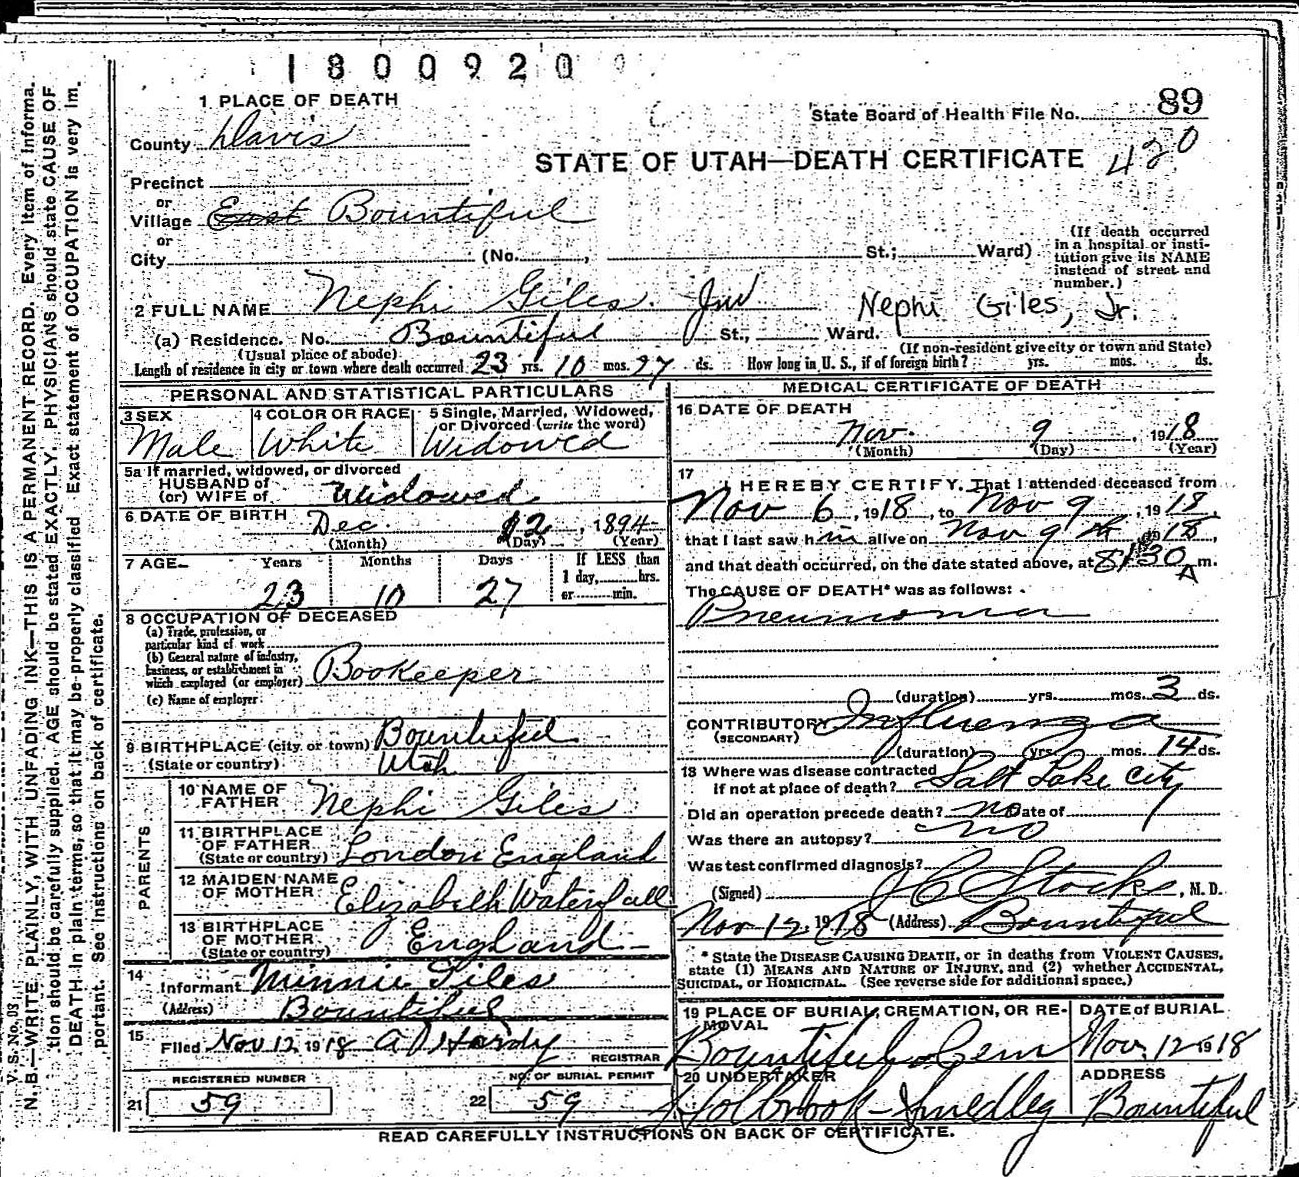 1800920
1 PLACE OF DEATH
State Board of Health File No. 89
County Davis
STATE OF UTAH—DEATH CERTIFICATE 420
Precinct
or
Village East Bountiful
or
City (No. , St.; Ward)
(If death occurred in a hospital or insti-
tution give its NAME
instead of street and
number.)
2 FULL NAME Nephi Giles. Jnr Nephi Giles, Jr.
(a) Residence. No. Bountiful St., Ward.
(Usual place of abode) (If non-resident give city or town and State)
Length of residence in city or town where death occurred 23 yrs. 10 mos. 27 ds. How long in U. S., if of foreign birth? yrs. mos. ds.
PERSONAL AND STATISTICAL PARTICULARS
3 SEX
Male
4 COLOR OR RACE
White
5 Single, Married, Widowed,
or Divorced (write the word)
Widowed
5a If married, widowed, or divorced
HUSBAND of
(or) WIFE of Widowed
6 DATE OF BIRTH Dec. 2, 1894
(Month) (Day) (Year)
7 AGE Years Months Days If LESS than
1 day, hrs.
or min.
23 10 27
8 OCCUPATION OF DECEASED
(a) Trade, profession, or
particular kind of work
(b) General nature of industry,
business, or establishment in
which employed (or employer) Bookeeper
(c) Name of employer
9 BIRTHPLACE (city or town) Bountiful
(State or country) Utah
PARENTS
10 NAME OF
FATHER Nephi Giles
11 BIRTHPLACE
OF FATHER
(State or country) London England
12 MAIDEN NAME
OF MOTHER Elizabeth Waterfall
13 BIRTHPLACE
OF MOTHER
(State or country) England
14
Informant Minnie Giles
(Address) Bountiful
15
Filed Nov 12, 1918 A D Hardy
REGISTRAR
REGISTERED NUMBER
21 59
NO. OF BURIAL PERMIT
22 59
MEDICAL CERTIFICATE OF DEATH
16 DATE OF DEATH
Nov. 9, 1918
(Month) (Day) (Year)
17
I HEREBY CERTIFY. That I attended deceased from
Nov 6, 1918, to Nov 9, 1918,
that I last saw him alive on Nov 9th 1918,
and that death occurred, on the date stated above, at 8:30 A m.
The CAUSE OF DEATH* was as follows:
Pneumonia
(duration) yrs. mos. 3 ds.
CONTRIBUTORY Influenza
(SECONDARY)
(duration) yrs. mos. 14 ds.
18 Where was disease contracted
if not at place of death? Salt Lake City
Did an operation precede death? no Date of
Was there an autopsy? no
Was test confirmed diagnosis?
(Signed) J C Stocks, M. D.
Nov 12 1918 (Address) Bountiful
* State the DISEASE CAUSING DEATH, or in deaths from VIOLENT CAUSES,
state (1) MEANS AND NATURE OF INJURY, and (2) whether ACCIDENTAL,
SUICIDAL, or HOMICIDAL. (See reverse side for additional space.)
19 PLACE OF BURIAL, CREMATION, OR RE-
MOVAL
Bountiful Cem
DATE of BURIAL
Nov. 12 1918
20 UNDERTAKER
Holbrook-Smedley
ADDRESS
Bountiful
READ CAREFULLY INSTRUCTIONS ON BACK OF CERTIFICATE.
V. S. No. 03
N. B.—WRITE PLAINLY, WITH UNFADING INK—THIS IS A PERMANENT RECORD. Every item of informa-
tion should be carefully supplied. AGE should be stated EXACTLY. PHYSICIANS should state CAUSE OF
DEATH in plain terms, so that it may be properly classified Exact statement of OCCUPATION is very im-
portant. See instructions on back of certificate.